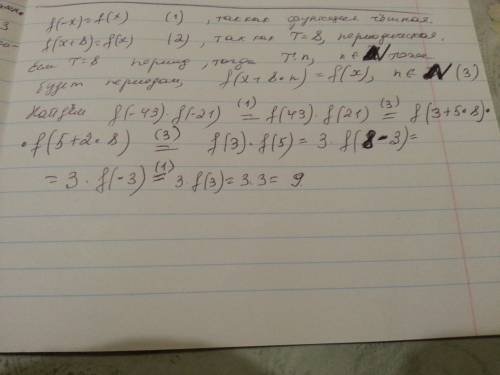 f(-x)=f(x) (1) , так как функция чётная.
f(x+8)=f(x) (2) , так как T=8, периодическая.
Если T=8 период, тогда T·n, n∈N тоже
будет периодом, f(x+8·n)=f(x), n∈N (3)
Найдём f(-43)·f(-21) (1)= f(43)·f(21) (3)= f(3+5·8)·
·f(5+2·8) (3)= f(3)·f(5)=3·f(8-3)=
=3·f(-3) (1)= 3 f(3)=3·3=9